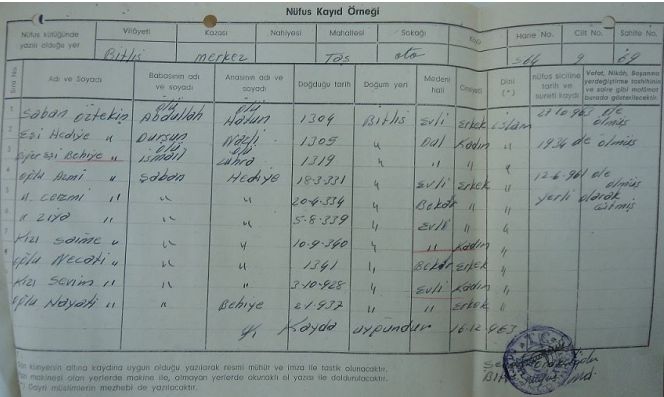 Nüfus Kayıd Örneği
Nüfus kütüğünde yazılı olduğu yer
Vilâyeti Kazası Nahiyesi Mahallesi Sokağı Köyü Hane No. Cilt No. Sahife No.
Bitlis merkez Taş 564 9 69
Sıra No. Adı ve Soyadı Babasının adı ve soyadı Anasının adı ve soyadı Doğduğu tarih Doğum yeri Medenî hali Cinsiyeti Dini (*) nüfus siciline tarih ve sureti kaydı Vefat, Nikâh, Boşanma
1 Şaban Öztekin ölü Abdullah ölü Hatun 1304 Bitlis Evli Erkek islam
2 Eşi Hediye " Dursun Nazlı 1305 " Dul Kadın " 1934 de ölmüş
3 Diğer eşi Behiye " ölü ismail ölü Zühra 1319 " " " "
4 oğlu Azmi " Şaban Hediye 18-3-331 " Evli Erkek " ölmüş
5 " " " " 20-4-334 " Bekâr " " yerli olarak
6 " Ziya " " " 5-8-339 " Evli " "
7 Kızı Saime " " " 10-9-340 " " Kadın "
oğlu Necati " " " 1341 " Bekâr Erkek "
Kızı Sevim " " " 3-10-928 " Evli Kadın "
oğlu Hayati " " Behiye 2-1-937 " " Erkek "
Kayda uygundur 16.12.963
künyenin altına kaydına uygun olduğu yazılarak resmî mühür ve imza ile tastik olunacaktır.
makinesi olan yerlerde makine ile, olmayan yerlerde okunaklı el yazısı ile doldurulacaktır.
(*) Gayri müslimlerin mezhebi de yazılacaktır.